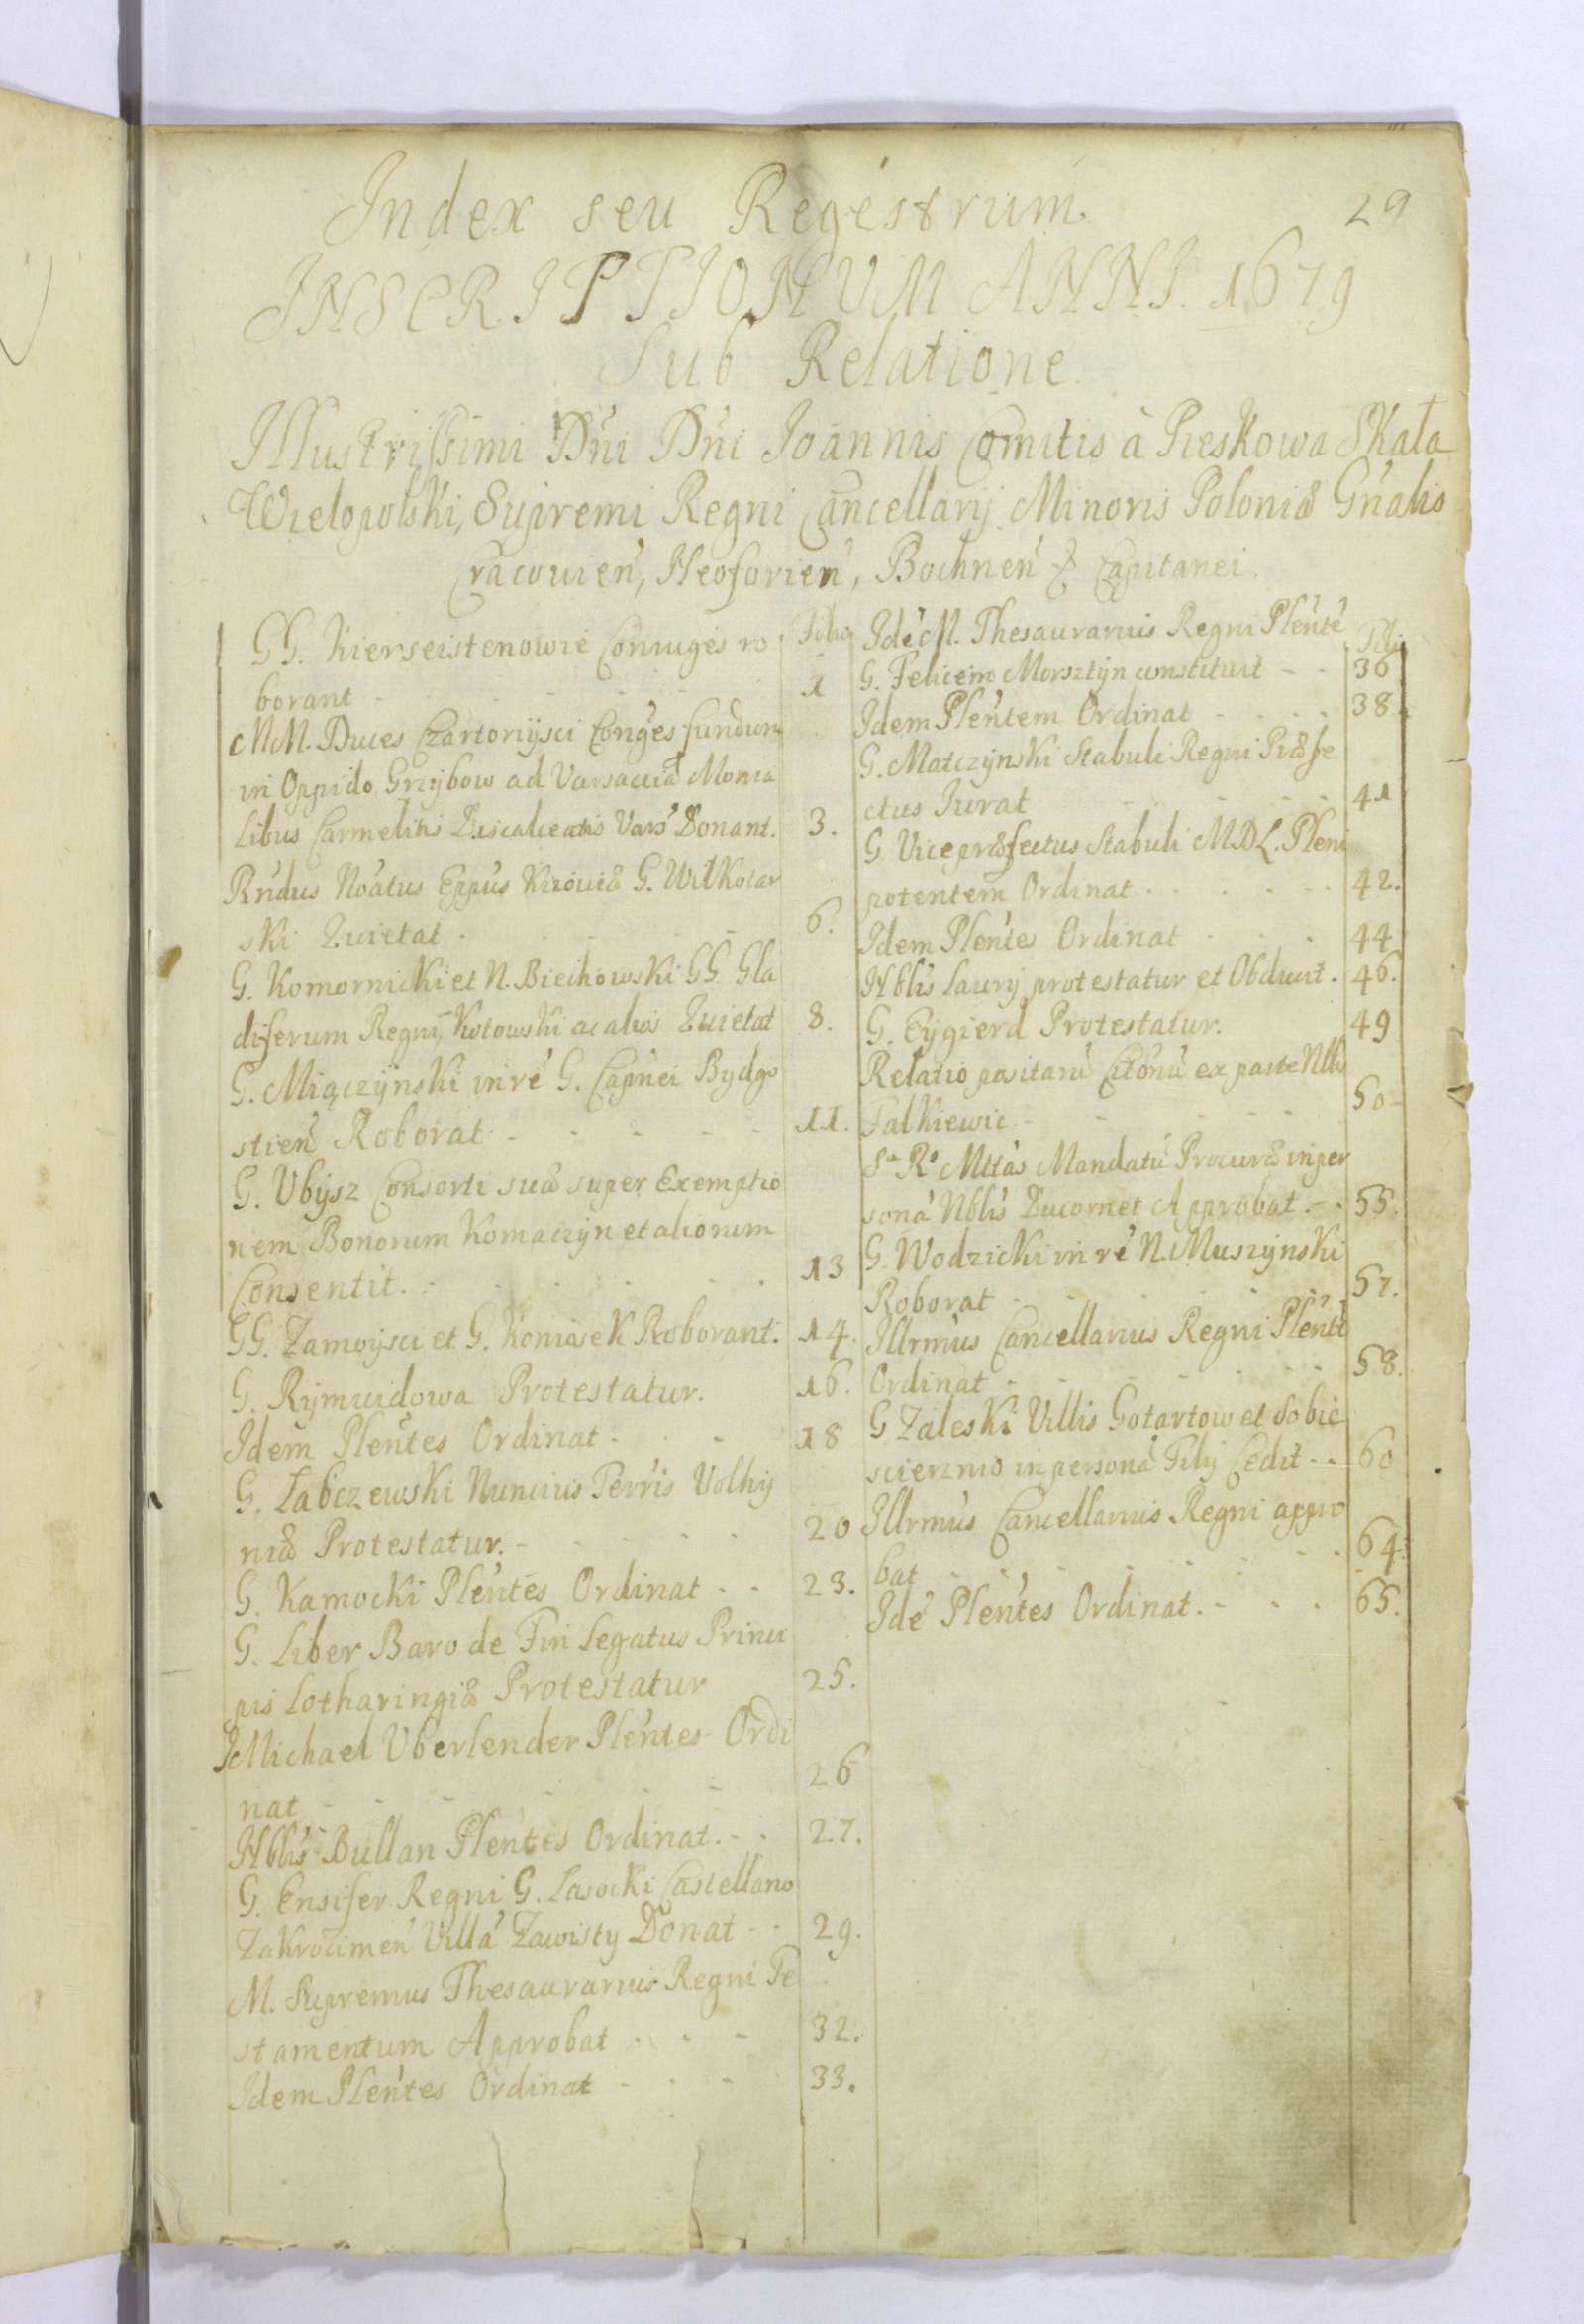 29
Index seu Regestrum
INSCRIPTIONUM ANNI 1679
Sub Relatione
Illustrissimi Dńi Dńi Joannis Comitis à Pieskowa Skała
Wielopolski, Supremi Regni Cancellarij Minoris Poloniæ Gńalis
Cracouien, Neoforien, Bochnen & Capitanei
Folio
GG. Kierseistenowie Coniuges ro
borant - - - 1
MM. Duces Czartoryjsci Conges fundum
in Oppido Grzybow ad Varsauiã Monia
libus Carmelitis Discalceatis Vars Donant. 3.
Rńdus Noatus Eppus Kiiouiæ G. Wilkolar
ski Quietat - - - 6.
G. Komornicki et N. Biechowski GG. Gla
diferum Regni, Kotowski ac alios Quietat 8.
G. Miączynski in rê G. Capnei Bydgo
stien Roborat - - - 11.
G. Ubysz Consorti suæ super Exemptio
nem Bonorum Komaczyn et aliorum
Consentit. - - - 13
GG. Zamoysci et G. Koniasek Roborant. 14.
G. Rymuidowa Protestatur. 16.
Idem Plentes Ordinat - - 18
G. Łabczewski Nuncius Terris Volhy
niæ Protestatur. - - - 20
G. Kamocki Plentes Ordinat - - 23.
G. Liber Baro de Fin Legatus Princi
pis Lotharingiæ Protestatur 25.
Michael Uberlender Plentes Ordi
nat - - - 26
Nblis Bullan Plentes Ordinat. - - 27.
G. Ensifer Regni G. Lasocki Castellano
Zakrocimen Villã Zawisty Donat - - 29.
M. Supremus Thesaurarius Regni Te
stamentum Approbat - - - 32.
Idem Plentes Ordinat - - - 33.
Folio
Idê M. Thesaurarius Regni Plente
G. Felicem Morsztyn constituit - - 36
Idem Plentem Ordinat - - - 38.
G. Matczynski Stabuli Regni Præfe
ctus Iurat - - - 41
G. Vice præfectus Stabuli M.D.L. Pleni
potentem Ordinat - - - 42.
Idem Plentes Ordinat - - - 44
Nblis Laurij protestatur et Obducit. 46.
G. Eygierd Protestatur. 49
Relatio positarũ Citonũ ex parte Nblis
Falkiewic - - - 50
Sa Ra Mttas Mandatũ Procuræ in per
sonã Nblis Ducornet Approbat. - - 55.
G. Wodzicki in rê N. Muszynski
Roborat - - - 57.
Illrmus Cancellarius Regni Plente
Ordinat - - - 58.
G. Zaleski Villis Gotartow et Sobie
sciernio in personã Filij Cedit - - 60
Illrmus Cancellarius Regni appro
bat - - - 64.
Idê Plentes Ordinat. - - - 65.